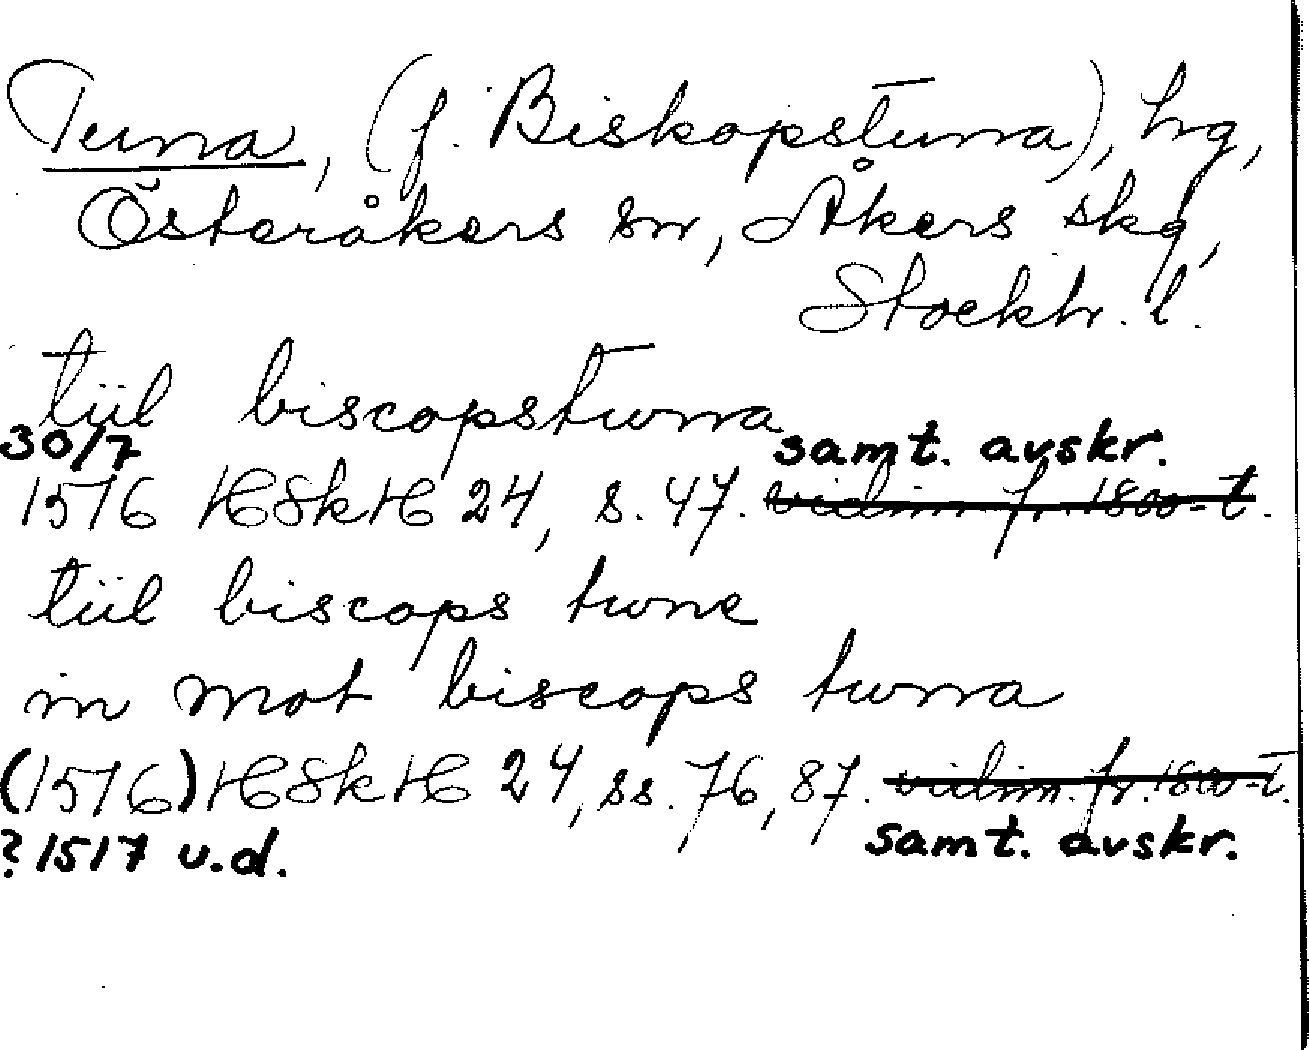 Tuna, (f. Biskopstuna), hg,
Österåkers sn, Åkers skg,
Stockh. l.
tiil biscopstuna
30/7 samt. avskr.
1516 HSkH 24, s. 47. vidim. fr. 1800-t.
tiil biscops twne
in mot biscops twna
(1516) HSkH 24, ss. 76, 87. vidim. fr. 1800-t.
? 1517 u.d. samt. avskr.